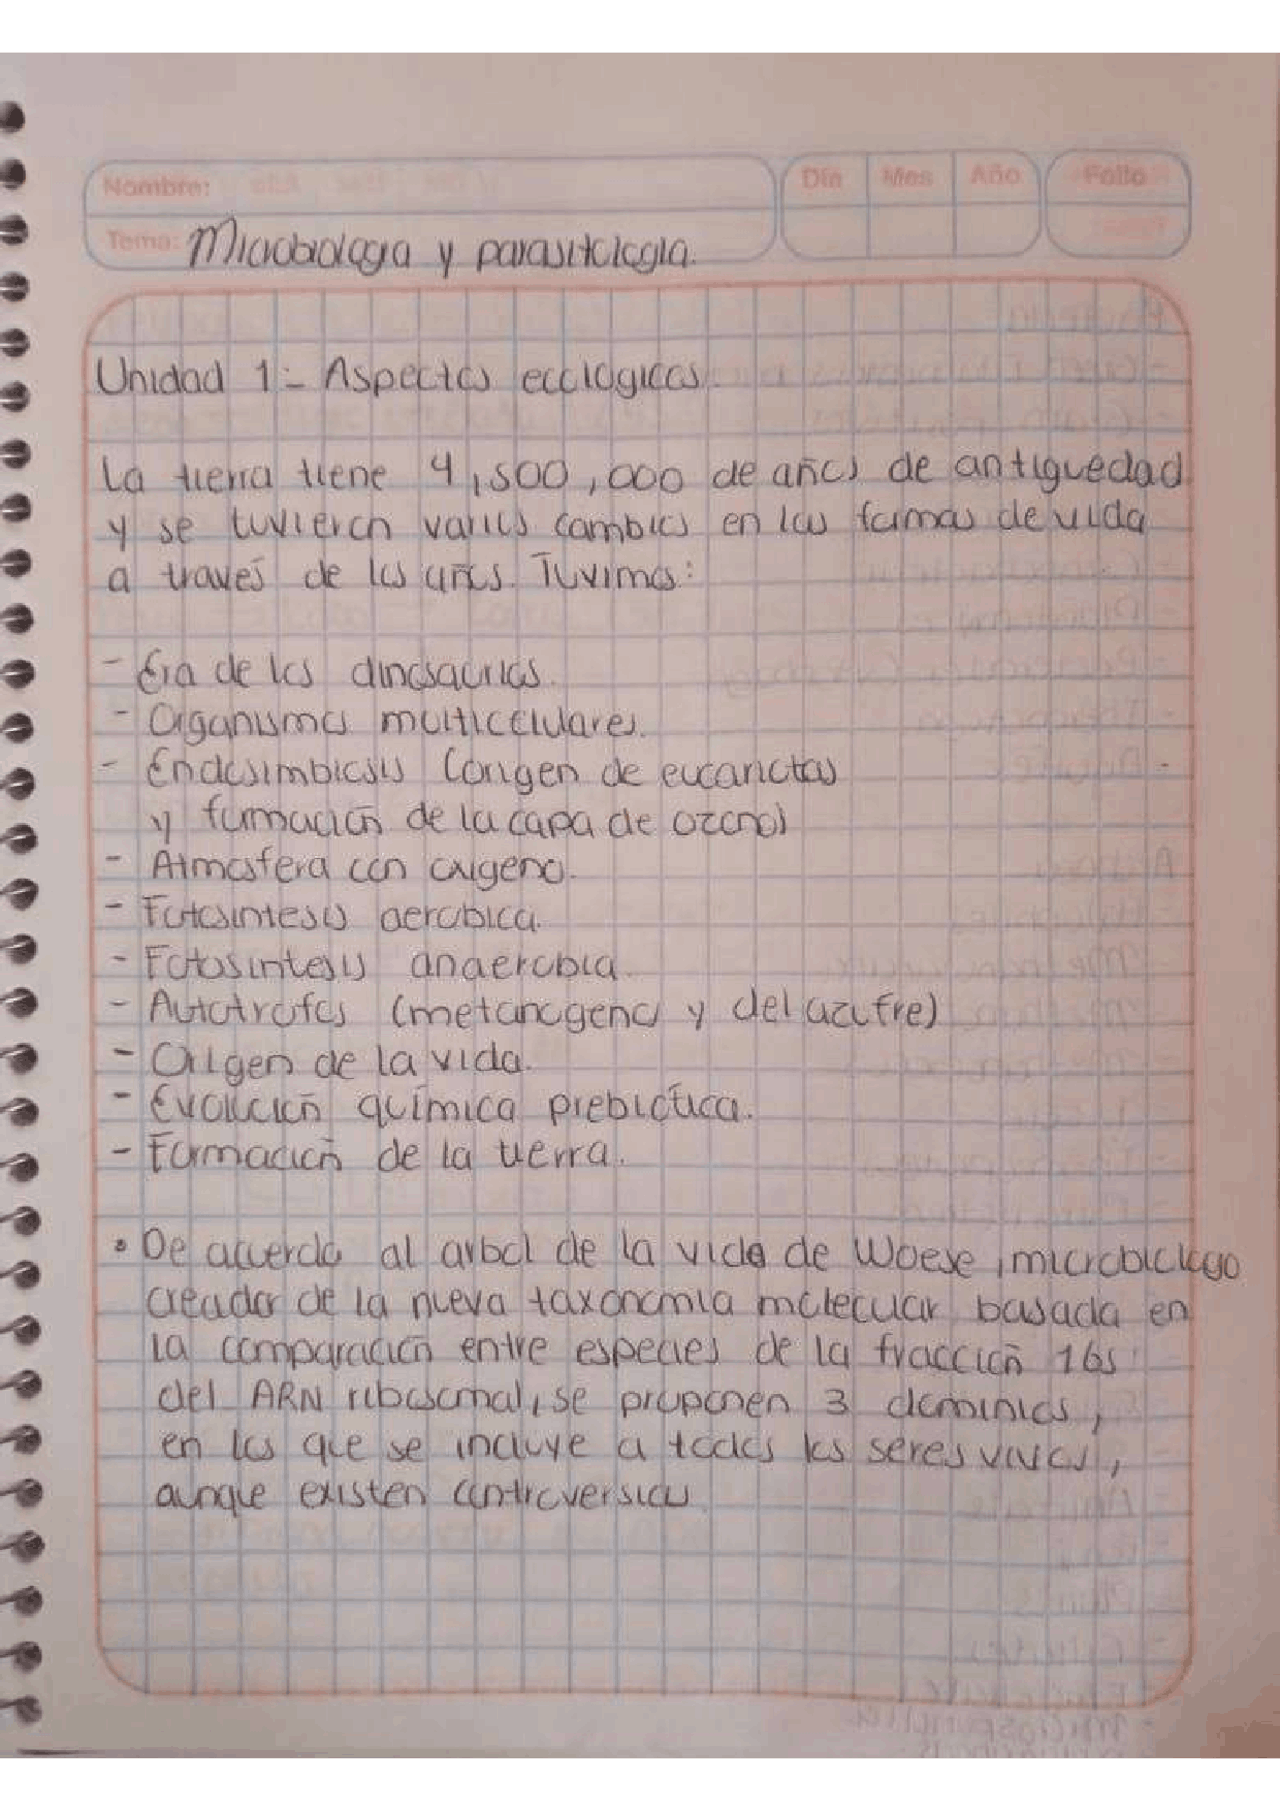 Nombre:
Día Mes Año Folio
Tema: Microbiologia y parasitologia.
Unidad 1.- Aspectos ecologicos.
La tierra tiene 4,500,000 de años de antiguedad
y se tuvieron varios cambios en las formas de vida
a través de los años. Tuvimos:
- Era de los dinosaurios.
- Organismos multicelulares.
- Endosimbiosis (origen de eucariotas
y formación de la capa de ozono)
- Atmosfera con oxigeno.
- Fotosintesis aerobica.
- Fotosintesis anaerobia.
- Autotrofos (metanogenos y del azufre)
- Origen de la vida.
- Evolución química prebiótica.
- Formación de la tierra.
• De acuerdo al arbol de la vida de Woese, microbiologo
creador de la nueva taxonomia molecular basada en
la comparación entre especies de la fracción 16s
del ARN ribosomal, se proponen 3 dominios,
en los que se incluye a todos los seres vivos,
aunque existen controversias